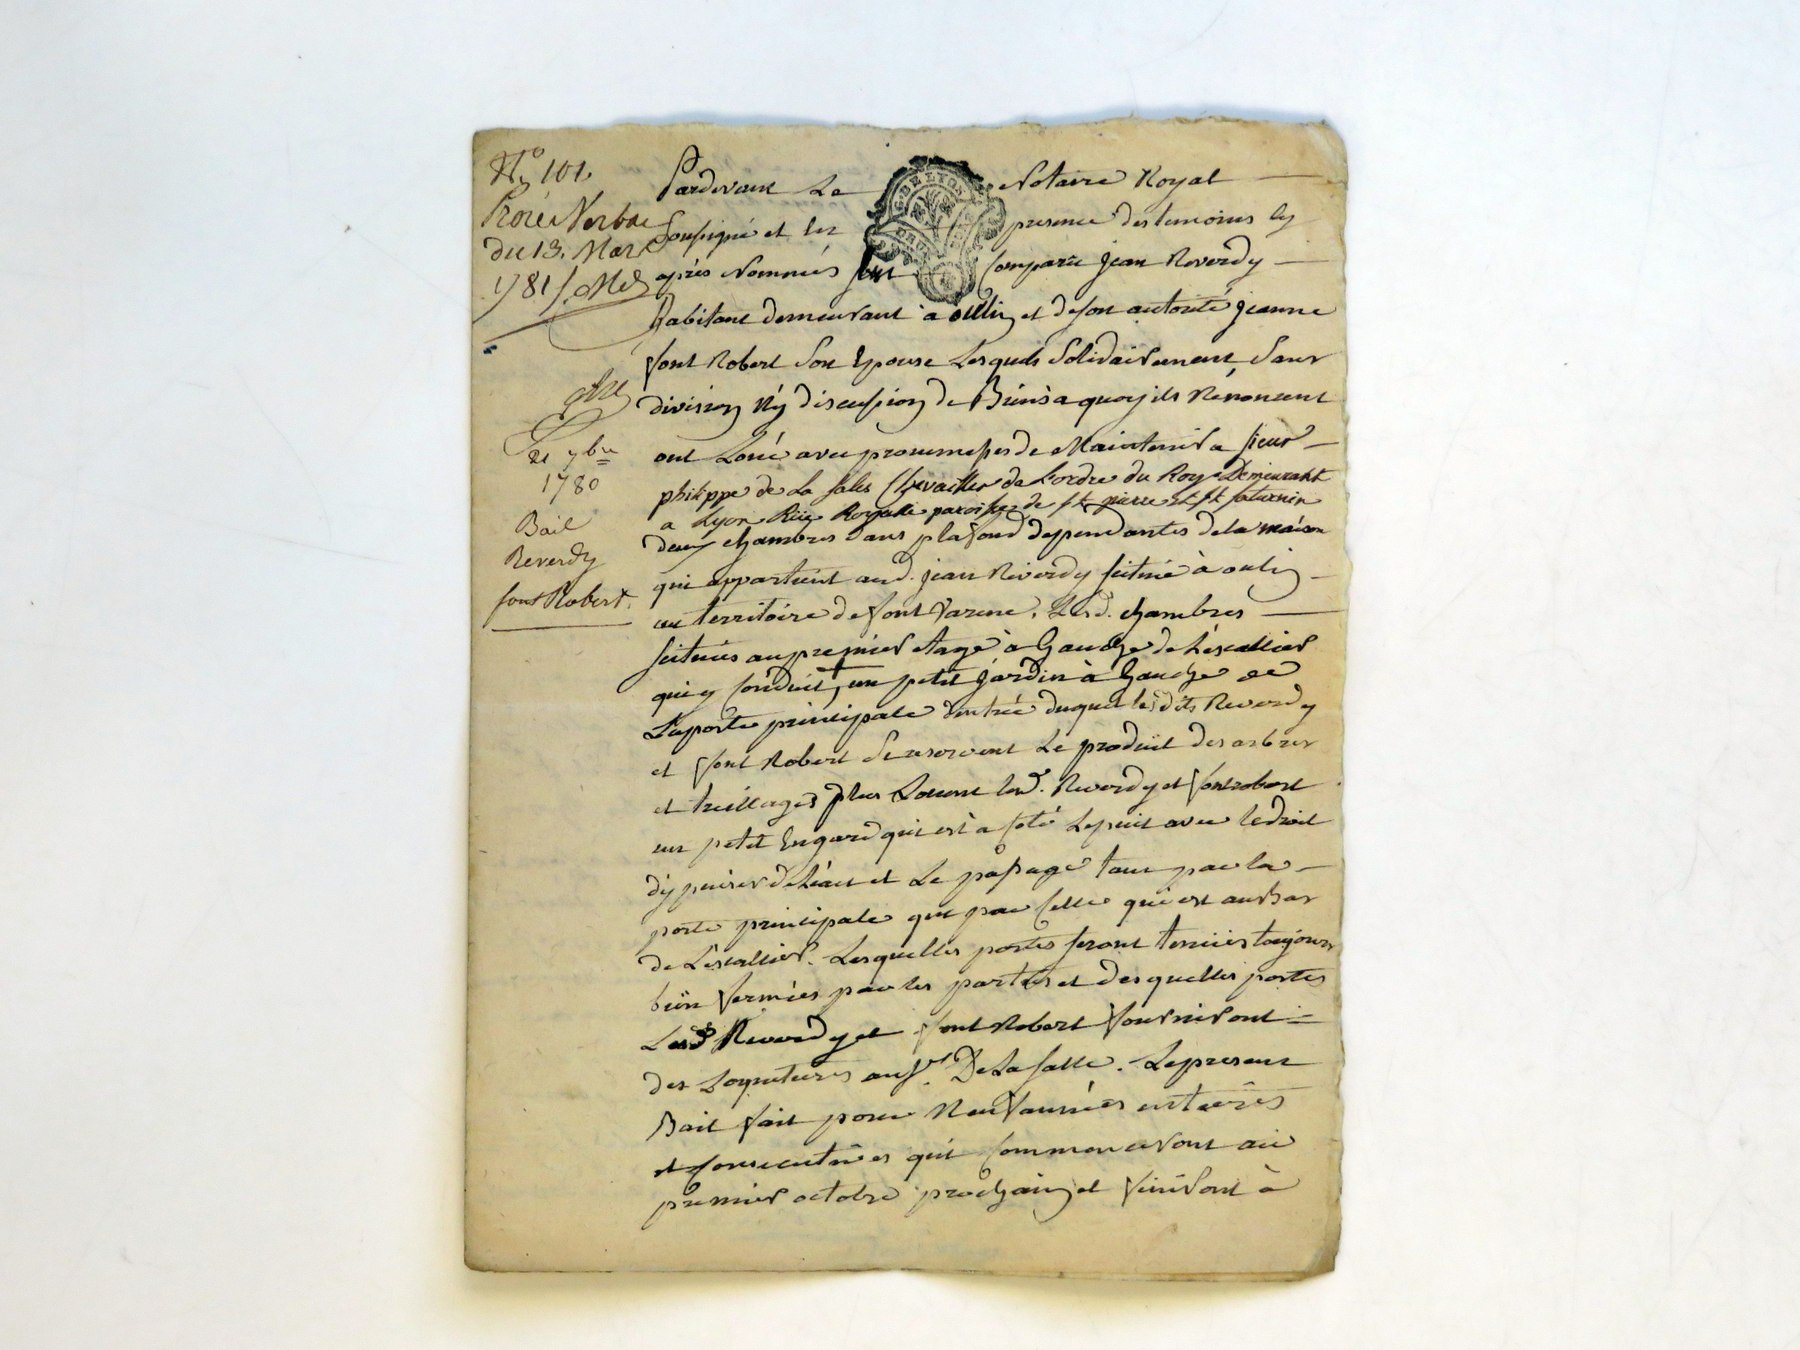 N.º 101.
Procés Verbal
du 13. Mars
1781
21 7bre
1780
Bail
Reverdy
font Robert.
DE LYON
Pardevant Le Notaire Royal
Soussigné et les presence des temoins cy
après Nommés sont Comparu jean Reverdy
habitant demeurant à oullin et de son autorité jeanne
font Robert Son Epouse Lesquels Solidairement, Sans
division Ny discussion de Biens a quoy ils Renoncent
ont Loué avec promesses de Maintenir a sieur
philippe de La salle Chevallier de L'ordre du Roy Demeurant
a Lyon Rüe Royalle paroisse de st. pierre et st. saturnin
deux chambres sans plafond dependantes de la maison
qui appartient aud. jean Reverdy scituée à oulin
au territoire de font Varene, Lesd. chambres
scituées au premier etage à Gauche de L'escallier
qui y conduit, un petit jardin à Gauche de
La porte principale d'entrée duquel lesdits Reverdy
et font Robert se reservent Le produit des arbres
et treillages plus Louent lesd. Reverdy et fontrobert
un petit Engard qui est a coté du puit avec le droit
d'y puiser de L'eau et Le passage tant par la
porte principale que par celle qui est au bas
de L'escallier. Lesquelles portes seront tenües toujours
bien fermées par les parties et desquelles portes
Lesd Reverdy et font Robert fourniront
des Loqueteures au sr. De La salle. Le present
Bail fait pour Neuf années entieres
et consecutives qui commenceront au
premier octobre prochain et finiront à